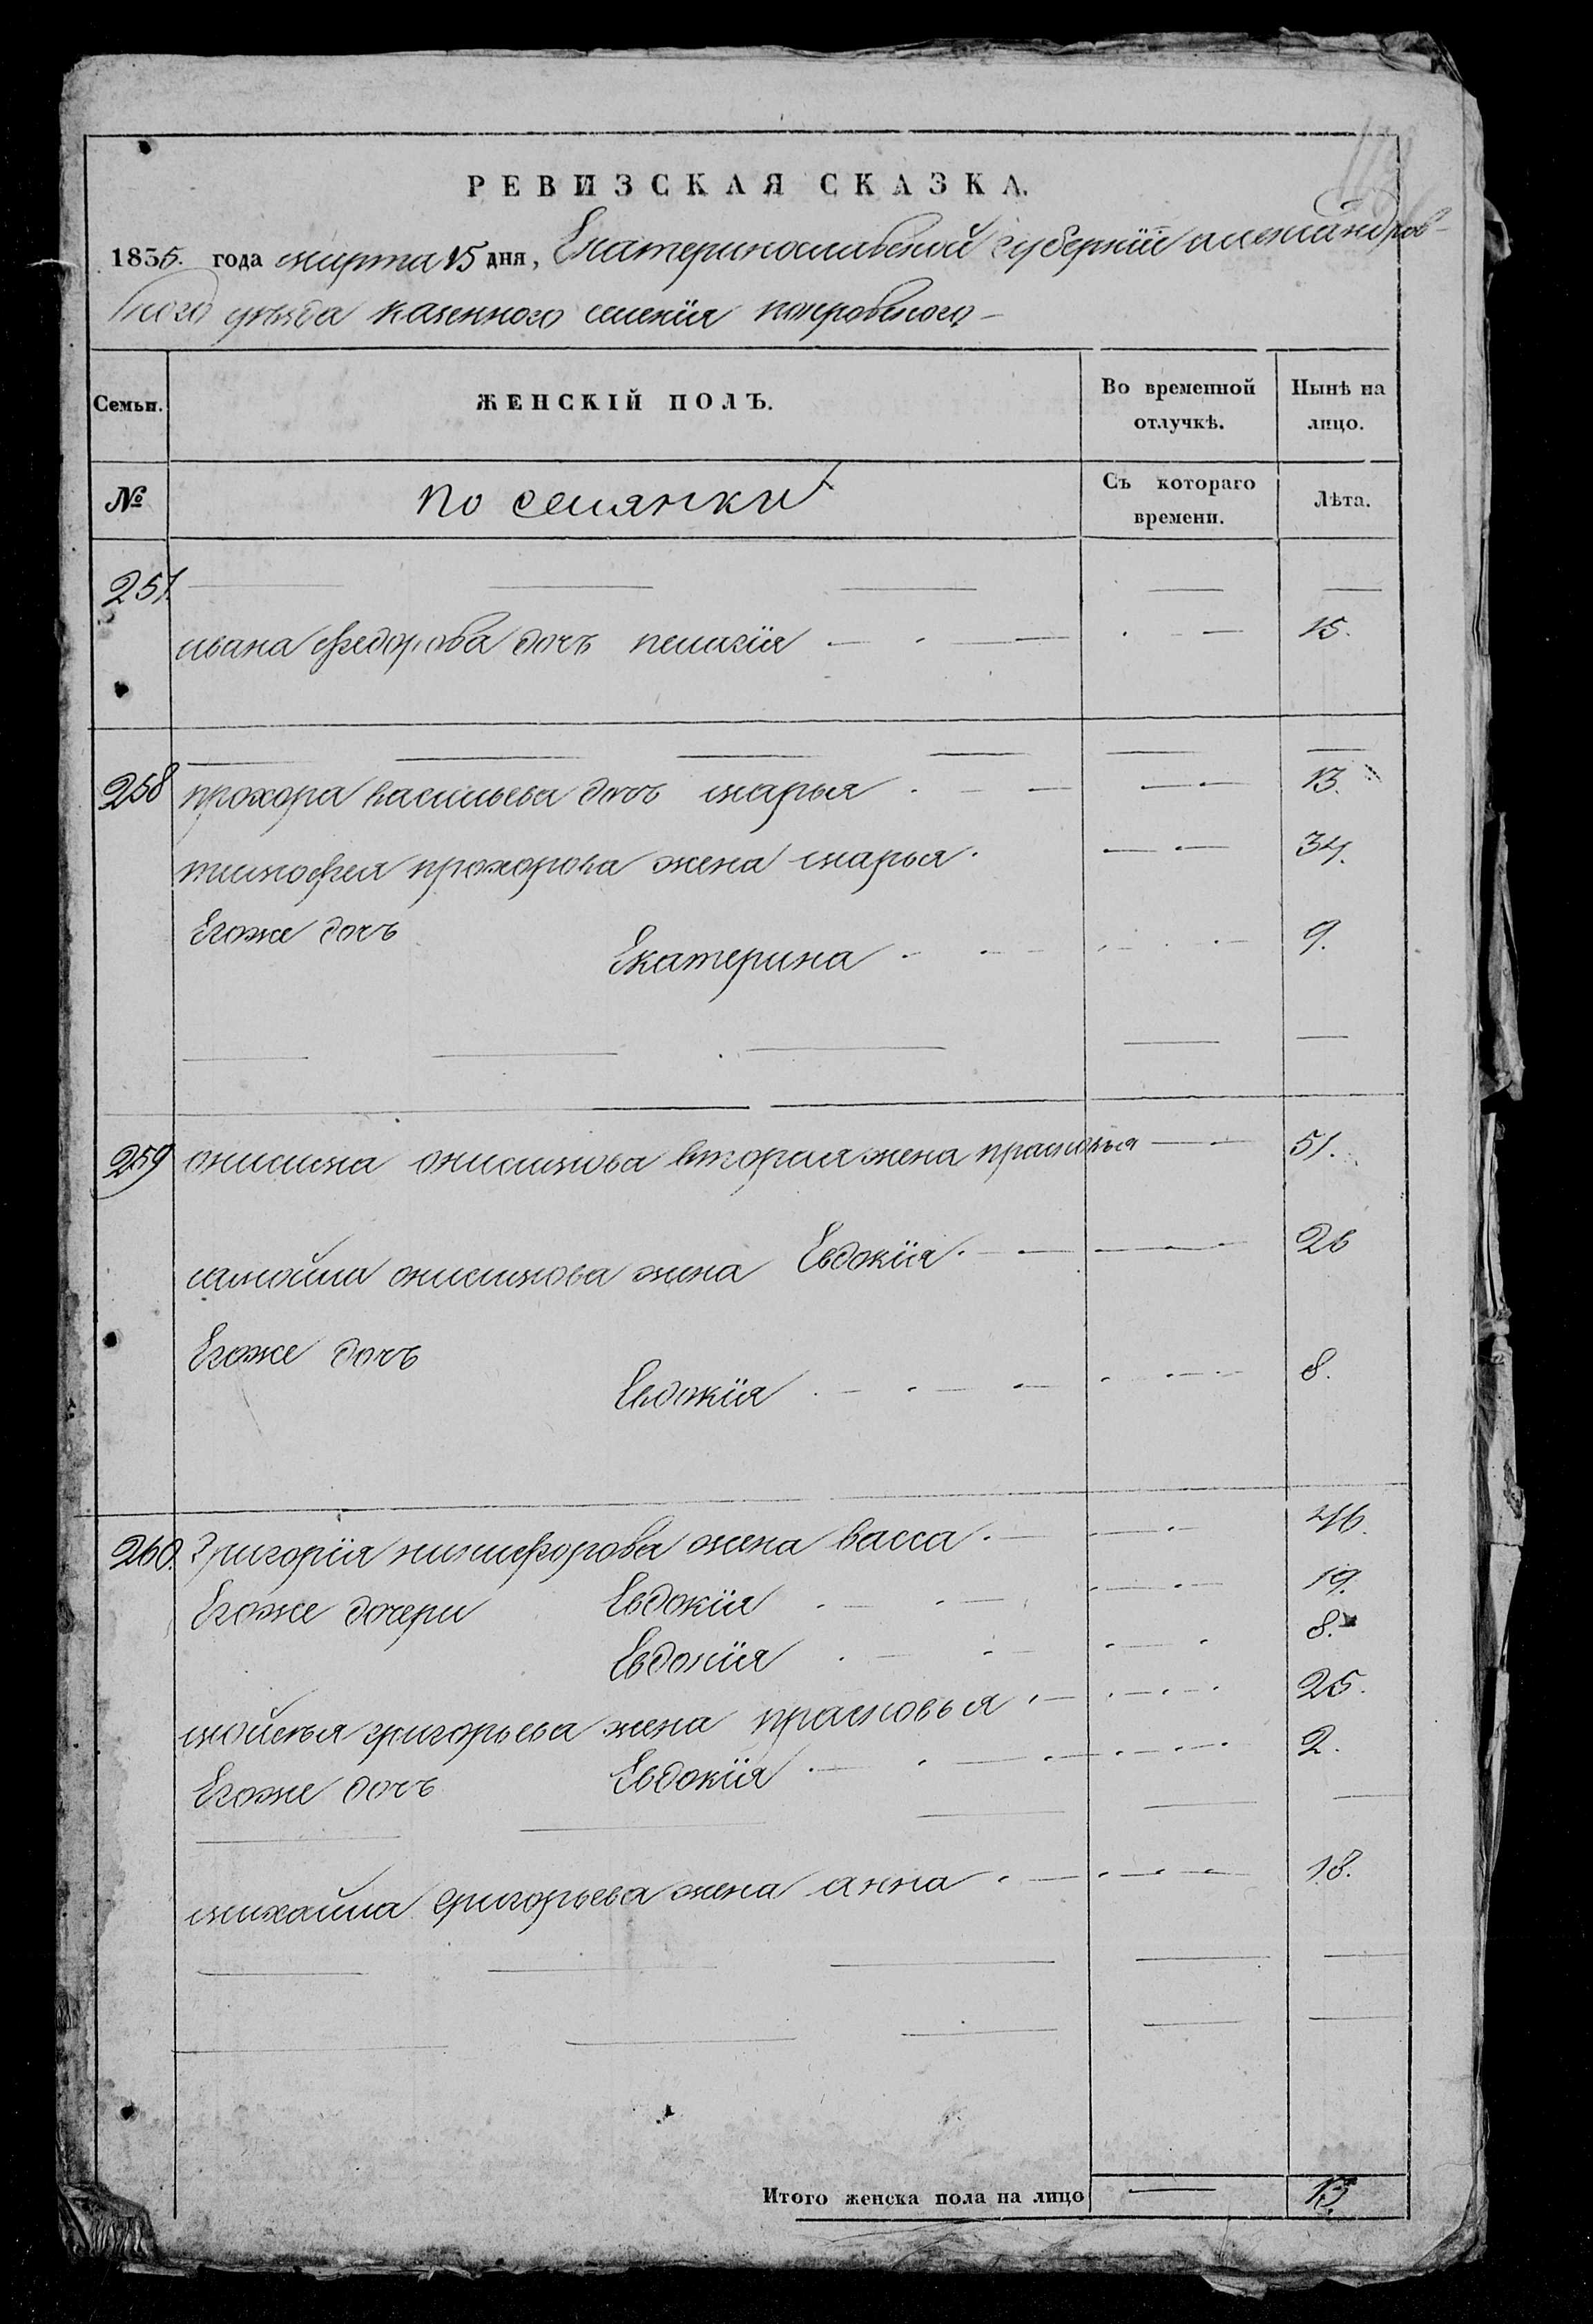 РЕВИЗСКАЯ СКАЗКА.
1835. года марта 15 дня, Екатеринославской губернїи александров-
ского уѣзда казенного селенїя покровского
Семьи. ЖЕНСКІЙ ПОЛЪ. Во временной отлучкѣ. Нынѣ на лицо.
№ поселянки Съ котораго времени. Лѣта.
257.
ивана федорова дочъ пелагїя 15.
258 прохора васильева дочъ марья 13.
тимофея прохорова жена марья 34.
Егоже дочъ
Екатерина 9.
259 онисима онисимова вторая жена прасковья 51.
самойла онисимова жена Евдокїя 26
Егоже дочъ
Евдокїя 8.
260. Григорїя никифорова жена васса 46.
Егоже дочери Евдокїя 19.
Евдокїя 8.
мойсея григорьева жена прасковья 25.
Егоже дочъ Евдокїя 2.
михайла григорьева жена анна 18.
Итого женска пола на лицо 13.